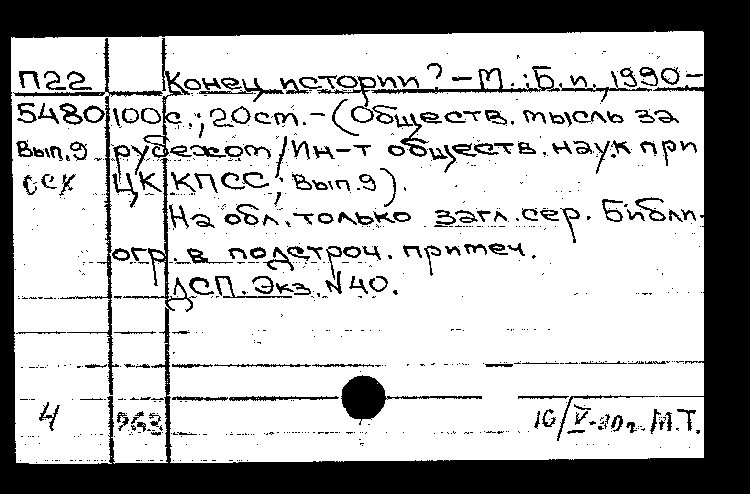 П22 Конец истории? – М.: Б.и., 1990 –
5480 100с.; 20см. – (Обществ. мысль за
Вып.9 рубежом / Ин-т обществ. наук при
ЦК КПСС; Вып.9).
На обл. только загл. сер. Библи-
огр. в подстроч. примеч.
ДСП. Экз. №40.
4 963 16/V-90г. М.Т.